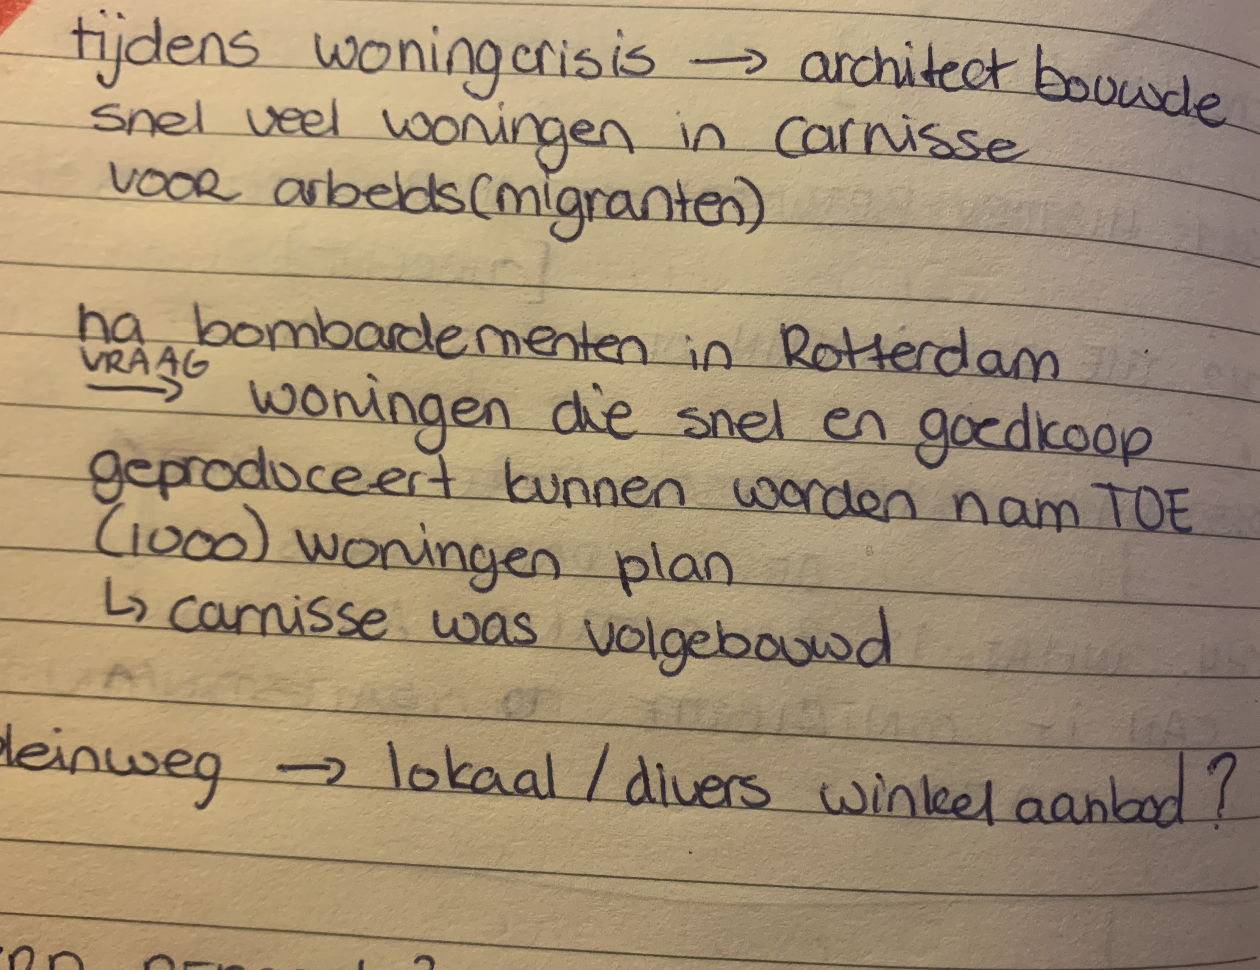 tijdens woningcrisis → architect bouwde
snel veel woningen in Carnisse
voor arbeids(migranten)
na bombardementen in Rotterdam
VRAAG
→ woningen die snel en goedkoop
geproduceert kunnen worden nam TOE
(1000) woningen plan
↳ carnisse was volgebouwd
pleinweg → lokaal / divers winkel aanbod?